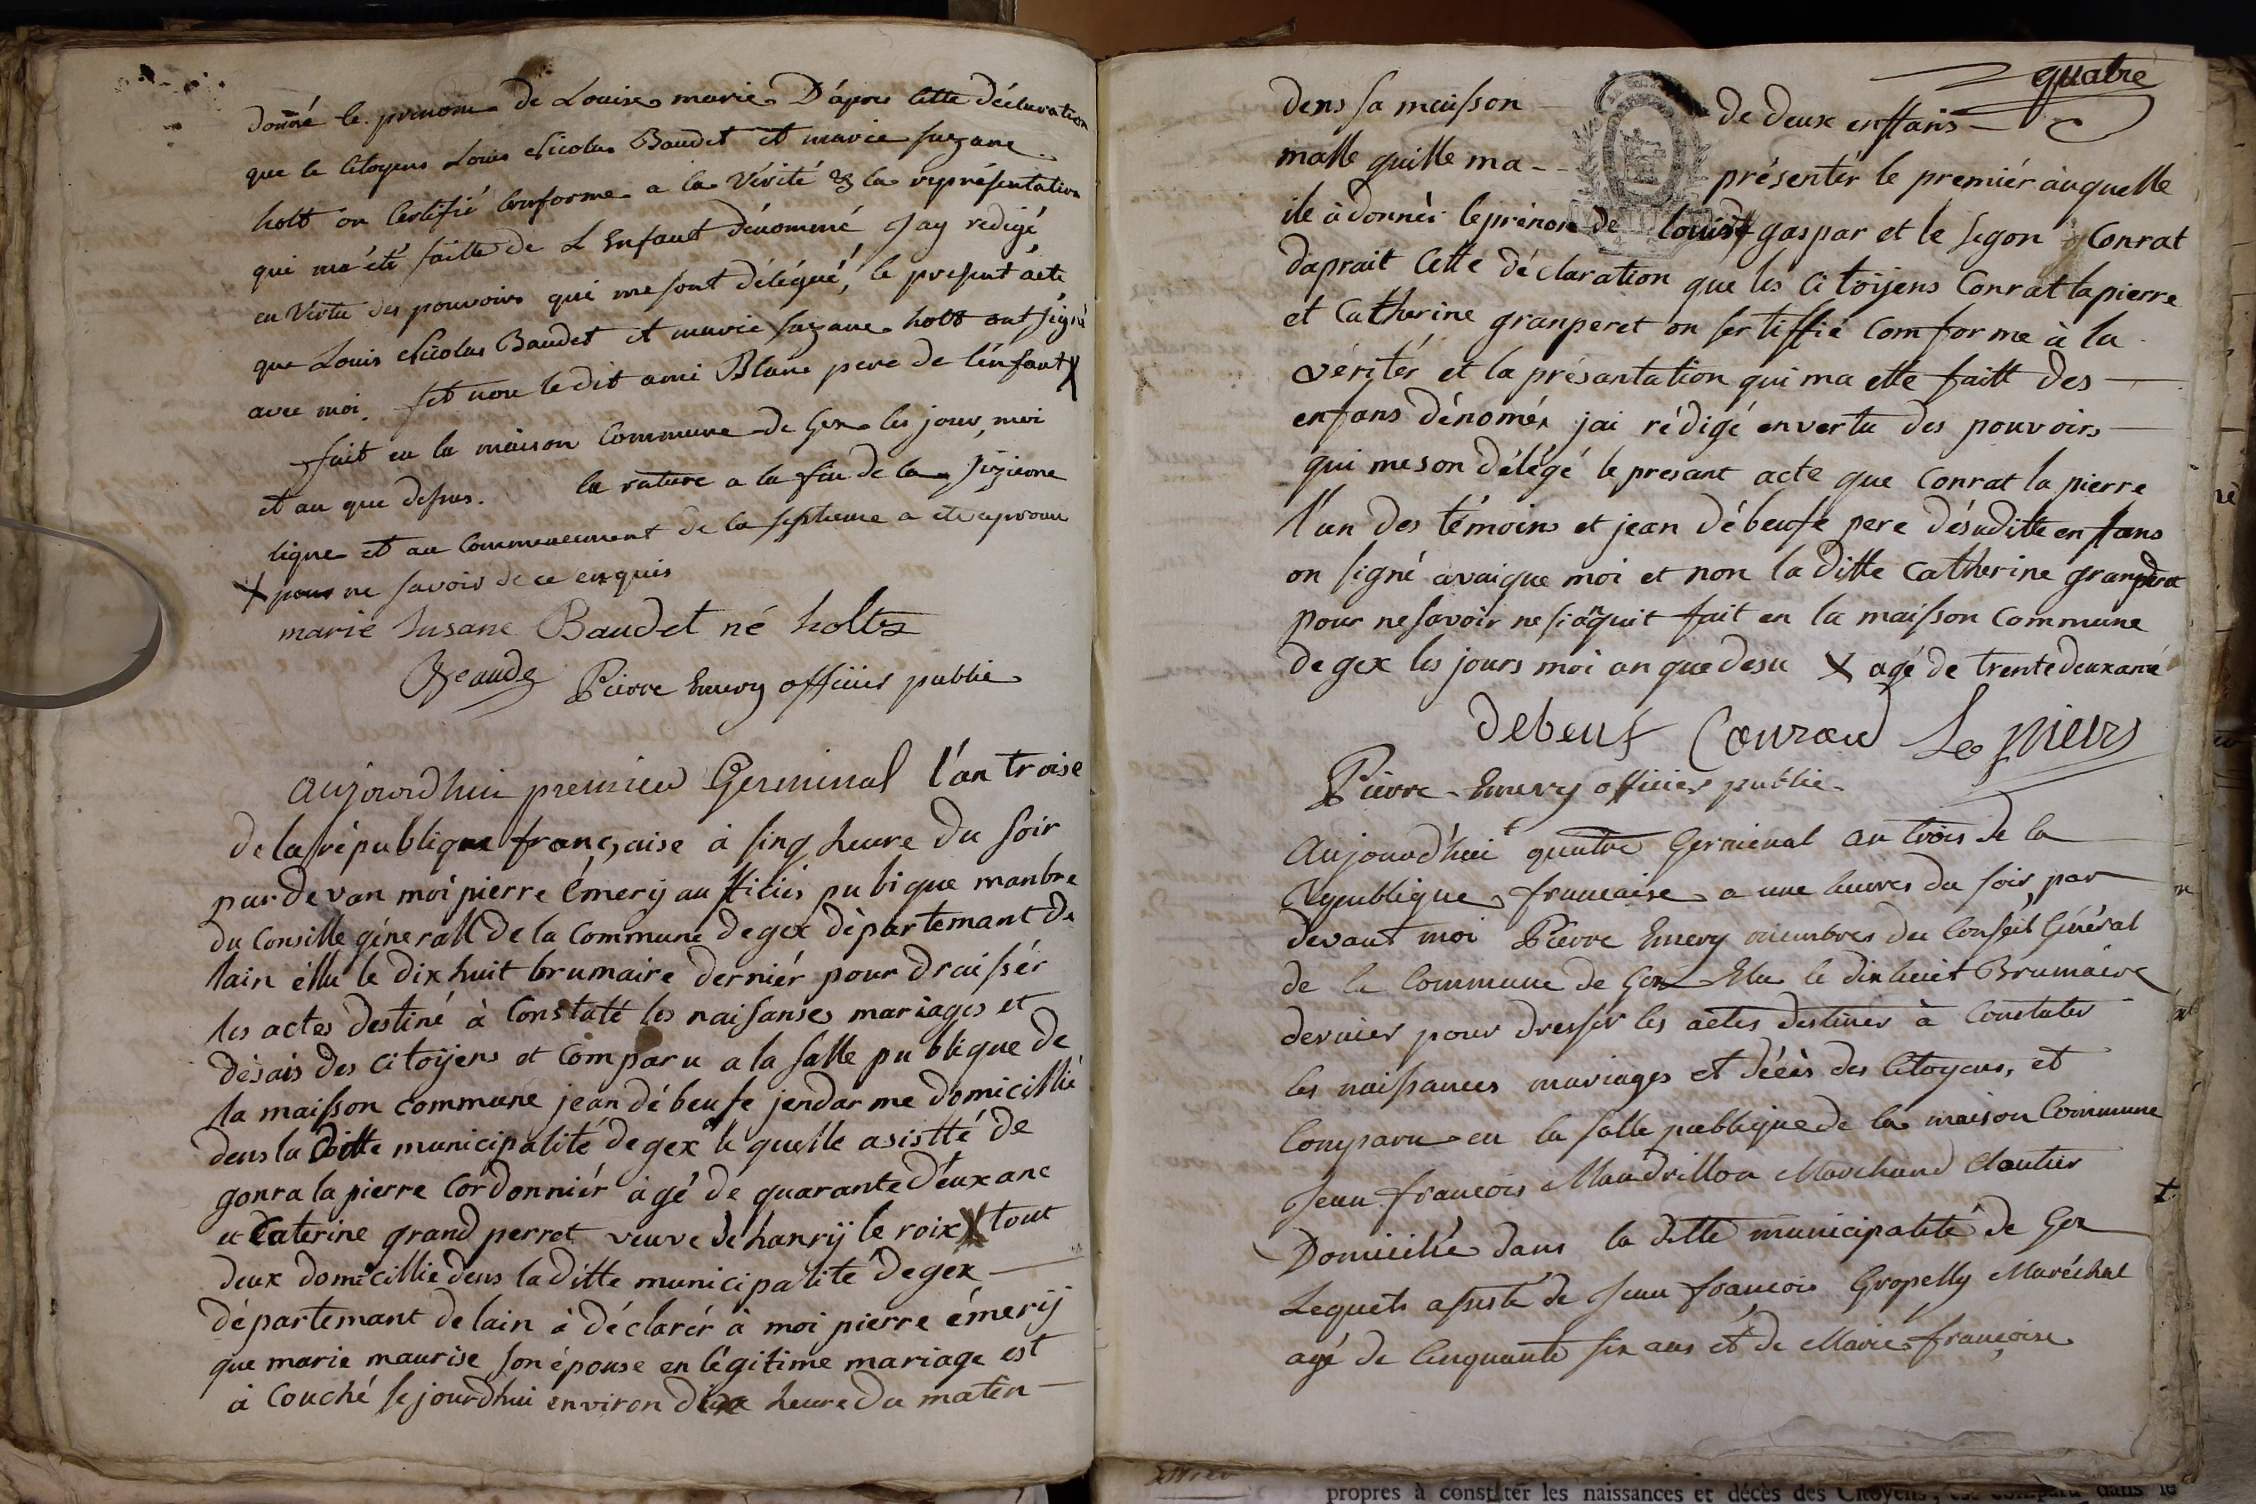 donné le prenom de Louise marie D'apres cette déclaration
que le Citoyens Louis Nicolas Baudet et marie suzane
holts on Certifié conforme a la Vérité & la représentation
qui m'a été faitte de L'Enfant dénommé J'ay redigé
en Vertu des pouvoirs qui me sont délégué, le present acte
que Louis Nicolas Baudet et marie suzane holts ont signé
avec moi. et non ledit ami Blanc pere de l'énfant X
fait en la maison Commune de Gex les jour, moi
et an que dessus. la rature a la fin de la sizieme
ligne et au Commencement de la septieme a été aprouve
X pour ne savoir de ce enquis
marie Susane Baudet né holtz
Beaude Pierre Emery officier public
aujourdhui premier Germinal l'an troise
de la république française à sinq heure du soir
pardevan moi pierre émerij aufficiés publique manbre
du Consille génerall de la Commune de gex départemant de
lain éllu le dix huit brumaire derniér pour draissér
les actes destiné à Constaté les naisanses mariages et
désais des citoijens et Comparu a la salle publique de
la maisson commune jean débeufe jendarme domicillié
dens la ditte municipalité de gex le quelle asistté de
gonra la pierre Cordonniér àgé de quarante deux ane
et Caterine grand perret veuve de hanrij le roix X tout
deux domicillié dens la ditte municipalité de gex
départemant de lain à déclarér à moi pierre émerij
que marie maurise son épouse en légitime mariage est
à Couché sejourdhui environ deux heure du maten
quatre
dens sa maisson de deux enffans
malle quille ma présentér le premiér àuquelle
ile à donnér le prénon de louis gaspar et le segon Conrat
daprait Cette déclaration que les Citoijens Conrat lapierre
et Catherine granperet on sertiffié Comforme à la
véritér et la présantation qui ma ette faitt des
enfans dénomér jai rédigé envertu des pouvoirs
qui meson délégé le presant acte que Conrat la pierre
l'un des témoins et jean débeufe pere désuditte enfans
on signé avaique moi et non la ditte Catherine granperet
pour nesavoir ne sianquit fait en la maisson Commune
de gex les jours moi an que desu X agé de trente deux ané
debeuf Conrad La pierrs
Pierre Emery officier public
Aujourd'hui quatre Germinal an trois de la
République francaise a une heures du soir par
devant moi Pierre Emery membres du Conseil Général
de la Commune de Gex Elu le dix huit Brumaire
dernier pour dresser les actes destiner à Constater
les naissances mariages et décès des Citoyens, et
Comparu en la salle publique de la maison Commune
Jean françois Mandrillon Marchand Cloutier
Domicilié dans la ditte municipalité de Gex
Lequels assisté de Jean françois Gropelly Maréchal
agé de Cinquante six ans et de Marie françoise
propres à constater les naissances et décès des Citoyens, est comparu dans le